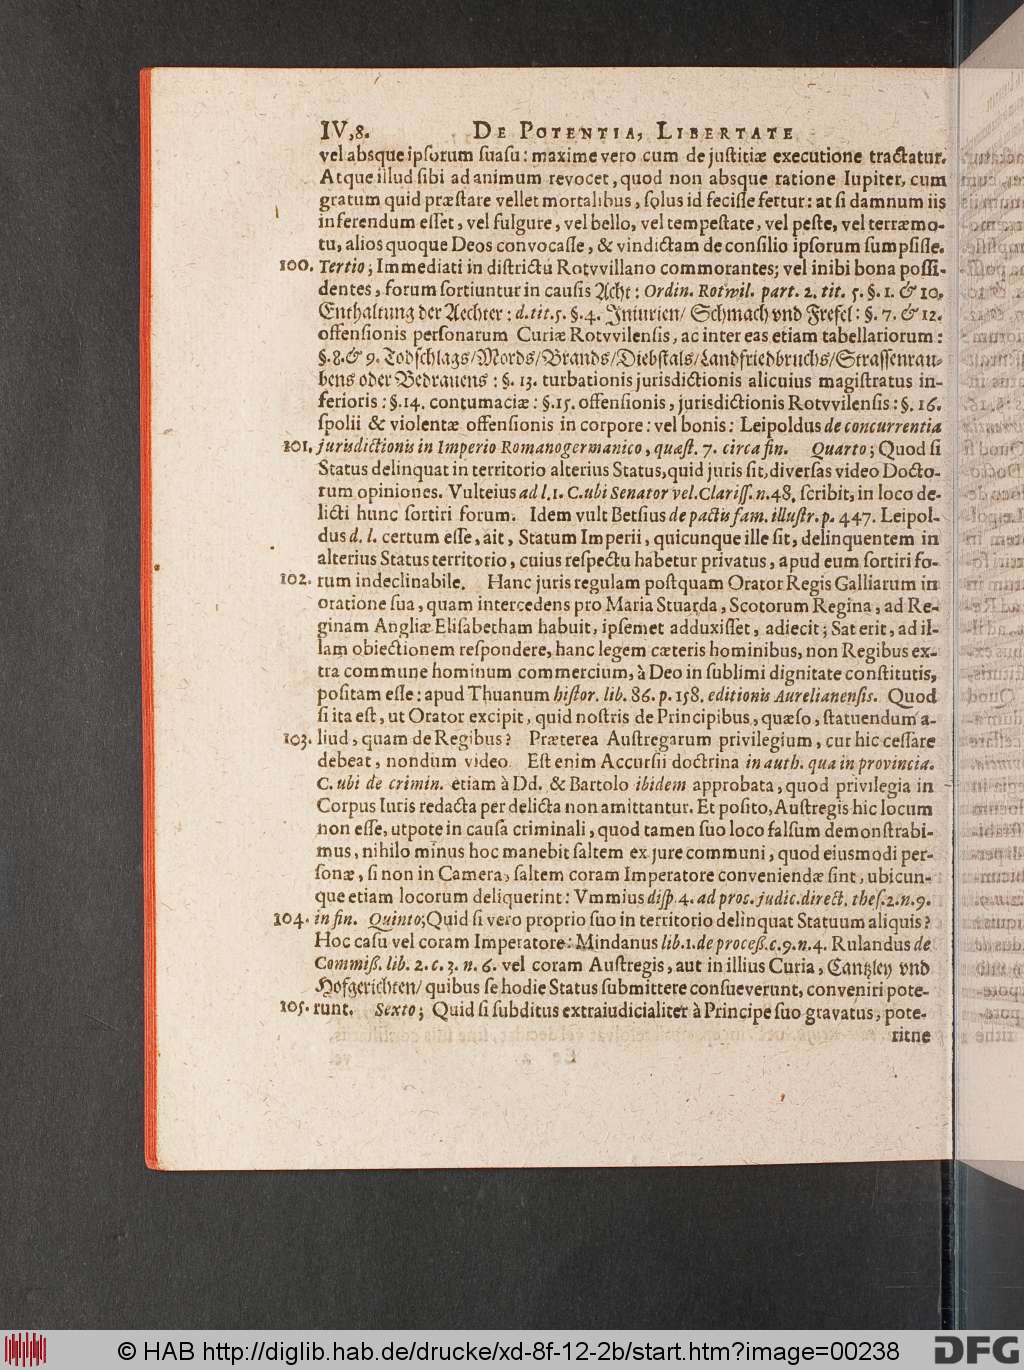 IV,8. DE POTENTIA, LIBERTATE
vel absque ipſorum ſuaſu: maxime vero cum de juſtitiæ executione tractatur.
Atque illud ſibi ad animum revocet, quod non absque ratione Iupiter, cum
gratum quid præſtare vellet mortalibus, ſolus id feciſſe fertur: at ſi damnum iis
inferendum eſſet, vel fulgure, vel bello, vel tempeſtate, vel peſte, vel terræmo-
tu, alios quoque Deos convocaſſe, & vindictam de conſilio ipſorum ſumpſiſſe.
100. Tertio; Immediati in diſtrictu Rotvvillano commorantes; vel inibi bona poſſi-
dentes, forum ſortiuntur in cauſis Acht: Ordin. Rotwil. part. 2. tit. 5. §. 1. & 10.
Enthaltung der Aechter: d. tit. 5. §. 4. Iniurien/ Schmach vnd Frefel: §. 7. & 12.
offenſionis perſonarum Curiæ Rotvvilenſis, ac inter eas etiam tabellariorum:
§. 8. & 9. Todſchlags/Mords/Brands/Diebſtals/Landfriedbruchs/Straſſenrau-
bens oder Bedrauens: §. 13. turbationis jurisdictionis alicuius magiſtratus in-
ferioris: §. 14. contumaciæ: §. 15. offenſionis, jurisdictionis Rotvvilenſis: §. 16.
ſpolii & violentæ offenſionis in corpore: vel bonis: Leipoldus de concurrentia
101. jurisdictionis in Imperio Romanogermanico, quæſt. 7. circa fin. Quarto; Quod ſi
Status delinquat in territorio alterius Status, quid juris ſit, diverſas video Docto-
rum opiniones. Vulteius ad l. 1. C. ubi Senator vel. Clariſſ. n. 48. ſcribit, in loco de-
licti hunc ſortiri forum. Idem vult Betſius de pactis fam. illuſtr. p. 447. Leipol-
dus d. l. certum eſſe, ait, Statum Imperii, quicunque ille ſit, delinquentem in
alterius Status territorio, cuius reſpectu habetur privatus, apud eum ſortiri fo-
102. rum indeclinabile. Hanc juris regulam poſtquam Orator Regis Galliarum in
oratione ſua, quam intercedens pro Maria Stuarda, Scotorum Regina, ad Re-
ginam Angliæ Eliſabetham habuit, ipſemet adduxiſſet, adiecit; Sat erit, ad il-
lam obiectionem reſpondere, hanc legem cæteris hominibus, non Regibus ex-
tra commune hominum commercium, à Deo in ſublimi dignitate conſtitutis,
poſitam eſſe: apud Thuanum hiſtor. lib. 86. p. 158. editionis Aurelianenſis. Quod
ſi ita eſt, ut Orator excipit, quid noſtris de Principibus, quæſo, ſtatuendum a-
103. liud, quam de Regibus? Præterea Auſtregarum privilegium, cur hic ceſſare
debeat, nondum video. Eſt enim Accurſii doctrina in auth. qua in provincia.
C. ubi de crimin. etiam à Dd. & Bartolo ibidem approbata, quod privilegia in
Corpus Iuris redacta per delicta non amittantur. Et poſito, Auſtregis hic locum
non eſſe, utpote in cauſa criminali, quod tamen ſuo loco falſum demonſtrabi-
mus, nihilo minus hoc manebit ſaltem ex jure communi, quod eiusmodi per-
ſonæ, ſi non in Camera, ſaltem coram Imperatore conveniendæ ſint, ubicun-
que etiam locorum deliquerint: Vmmius diſp. 4. ad proc. judic. direct. theſ. 2. n. 9.
104. in fin. Quinto; Quid ſi vero proprio ſuo in territorio delinquat Statuum aliquis?
Hoc caſu vel coram Imperatore: Mindanus lib. 1. de proceß. c. 9. n. 4. Rulandus de
Commiß. lib. 2. c. 3. n. 6. vel coram Auſtregis, aut in illius Curia, Cantzley vnd
Hofgerichten/ quibus ſe hodie Status ſubmittere conſueverunt, conveniri pote-
105. runt. Sexto; Quid ſi ſubditus extraiudicialiter à Principe ſuo gravatus, pote-
ritne
© HAB http://diglib.hab.de/drucke/xd-8f-12-2b/start.htm?image=00238
DFG